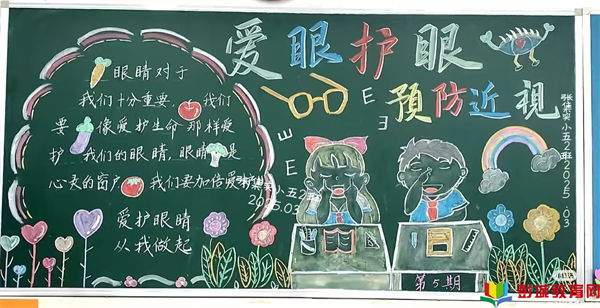 爱眼护眼
预防近视
眼睛对于
我们十分重要,我们
要像爱护生命那样爱
护我们的眼睛,眼睛是
心灵的窗户,我们要加倍爱
爱护眼睛
从我做起
2025.03
E
E
E
E
小五2班2025.03
第5期